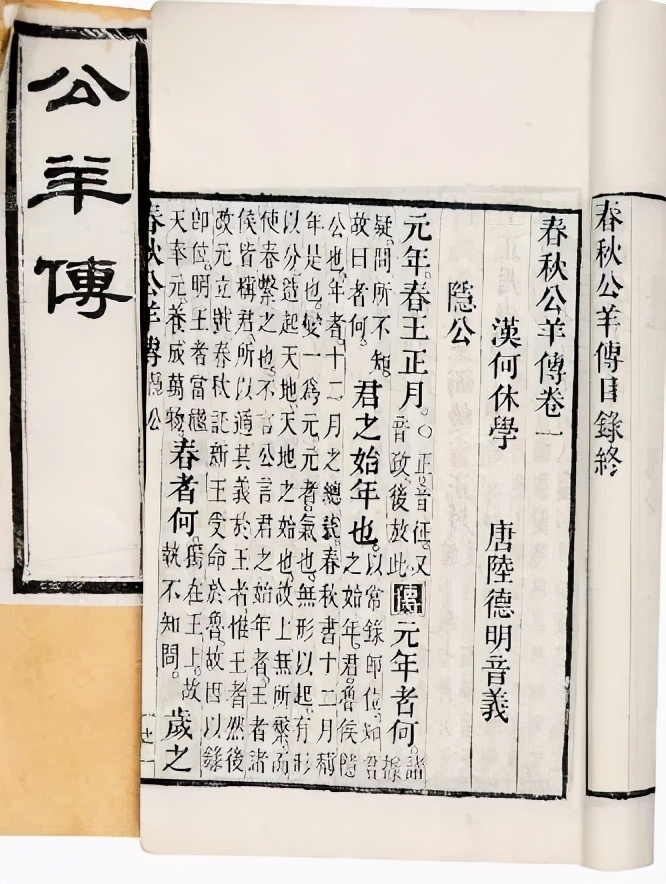 公羊傳
春秋公羊傳目錄終
春秋公羊傳卷一
漢何休學　唐陸德明音義
隱公
元年。春王正月。○正音征。又音政。後放此傳元年者何。諸據
疑問所不知。故曰者何。君之始年也。以常錄卽位。知君之始年。君。魯侯隱
公也。年者。十二月之總號。春秋書十二月稱
年是也。變一爲元。元者。氣也。無形以起。有形
以分。造起天地。天地之始也。故上無所繫。而
使春繫之也。不言公。言君之始年者。王者諸
侯皆稱君。所以通其義於王者。惟王者然後
改元立號。春秋託新王受命於魯。故因以錄
卽位。明王者當繼天奉元。養成萬物。春者何。獨在王上。故執不知問。歲之
春秋公羊傳 隱公